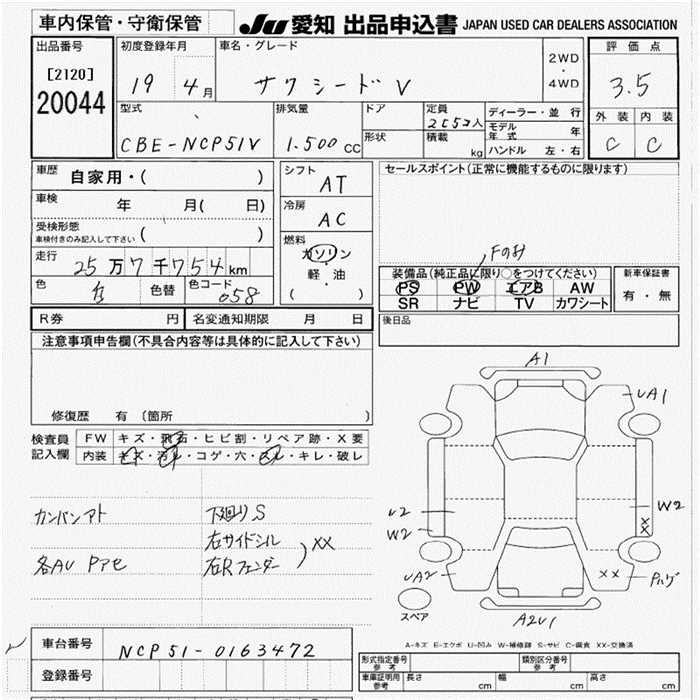 車内保管・守衛保管
JU 愛知 出品申込書 JAPAN USED CAR DEALERS ASSOCIATION
出品番号
[2120]
20044
初度登録年月
19 4月
車名・グレード
サクシードV
2WD
・
4WD
評価点
3.5
外装 内装
C C
型式
CBE-NCP51V
排気量
1.500cc
ドア
形状
定員
2と5名人
積載
kg
ディーラー・並行
モデル年式 年
ハンドル 左・右
車歴 自家用・( )
車検 年 月( 日)
受検形態
車検付きのみ記入して下さい ( )
走行 25万7千754km
色 白 色替 色コード 058
シフト
AT
冷房
AC
燃料
ガソリン
軽・油
( )
セールスポイント(正常に機能するものに限ります)
Fのみ
装備品(純正品に限り○をつけてください)
PS PW エアB AW
SR ナビ TV カワシート
新車保証書
有・無
R券 円 名変通知期限 月 日
後日品
注意事項申告欄(不具合内容等は具体的に記入して下さい)
修復歴 有 (箇所 )
検査員
記入欄
FW キズ・飛石・ヒビ割・リペア跡・X要
内装 キズ・汚レ・コゲ・穴・スレ・キレ・破レ
カンバンアト
各AU Pアセ
下廻りS
右サイドシル
右Rフェンダー
XX
A1
UA1
U2
W2
W2
XX
UA2
XX
Pハゲ
スペア
A2U1
A-キズ E-エクボ U-凹み W-補修跡 S-サビ C-腐食 XX-交換済
車台番号 NCP51-0163472
登録番号
形式指定番号
参考
類別区分番号
参考
車庫証明用
参考
長さ cm 幅 cm 高さ cm